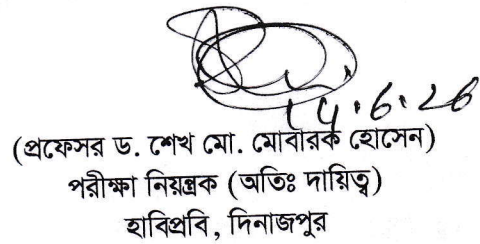 (প্রফেসর ড. শেখ মো. মোবারক হোসেন)
পরীক্ষা নিয়ন্ত্রক (অতিঃ দায়িত্ব)
হাবিপ্রবি, দিনাজপুর